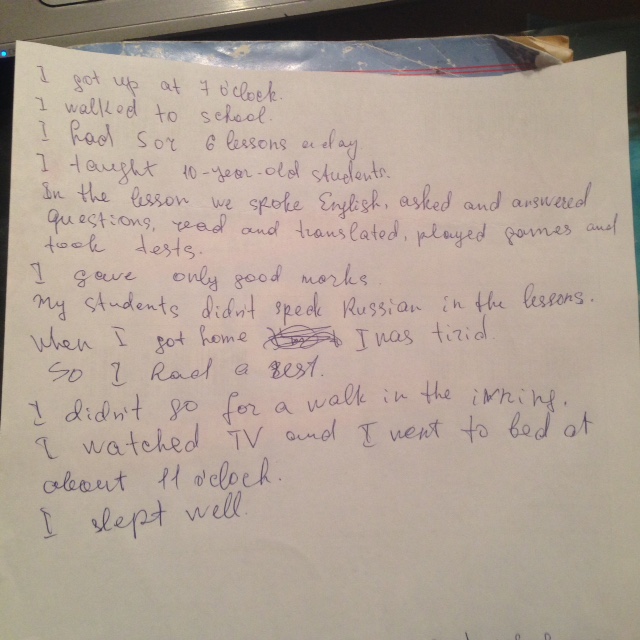 I got up at 7 o'clock.
I walked to school.
I had 5 or 6 lessons a day
I taught 10-year-old students.
In the lesson we spoke English, asked and answered
questions, read and translated, played games and
took tests.
I gave only good marks.
My students didn't speak Russian in the lessons.
When I got home I was tirid.
So I had a rest.
I didn't go for a walk in the ivning.
I watched TV and I went to bed at
about 11 o'clock.
I slept well.